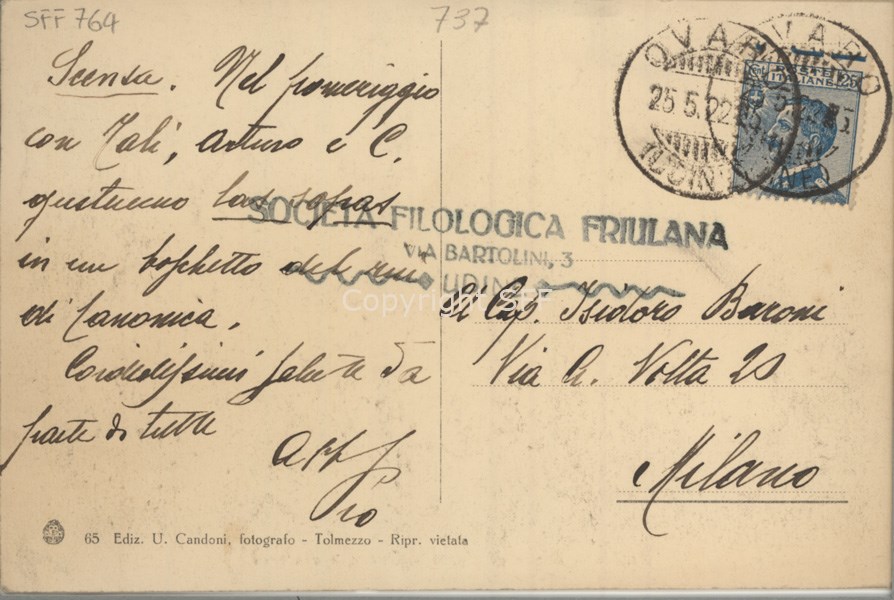 SFF 764
737
OVARO
25.5.22
(UDINE)
OVARO
(UDINE)
POSTE
ITALIANE
25
Scensa. Nel pomeriggio
con Tali, Arturo e C.
gusteremo las sopas
in un boschetto
di Canonica.
Cordialissimi salute da
parte di tutte
Pio
SOCIETÀ FILOLOGICA FRIULANA
VIA BARTOLINI, 3
UDINE
Copyright SFF
Cap. Isidoro Baroni
Via A. Volta 20
Milano
65 Ediz. U. Candoni, fotografo - Tolmezzo - Ripr. vietata